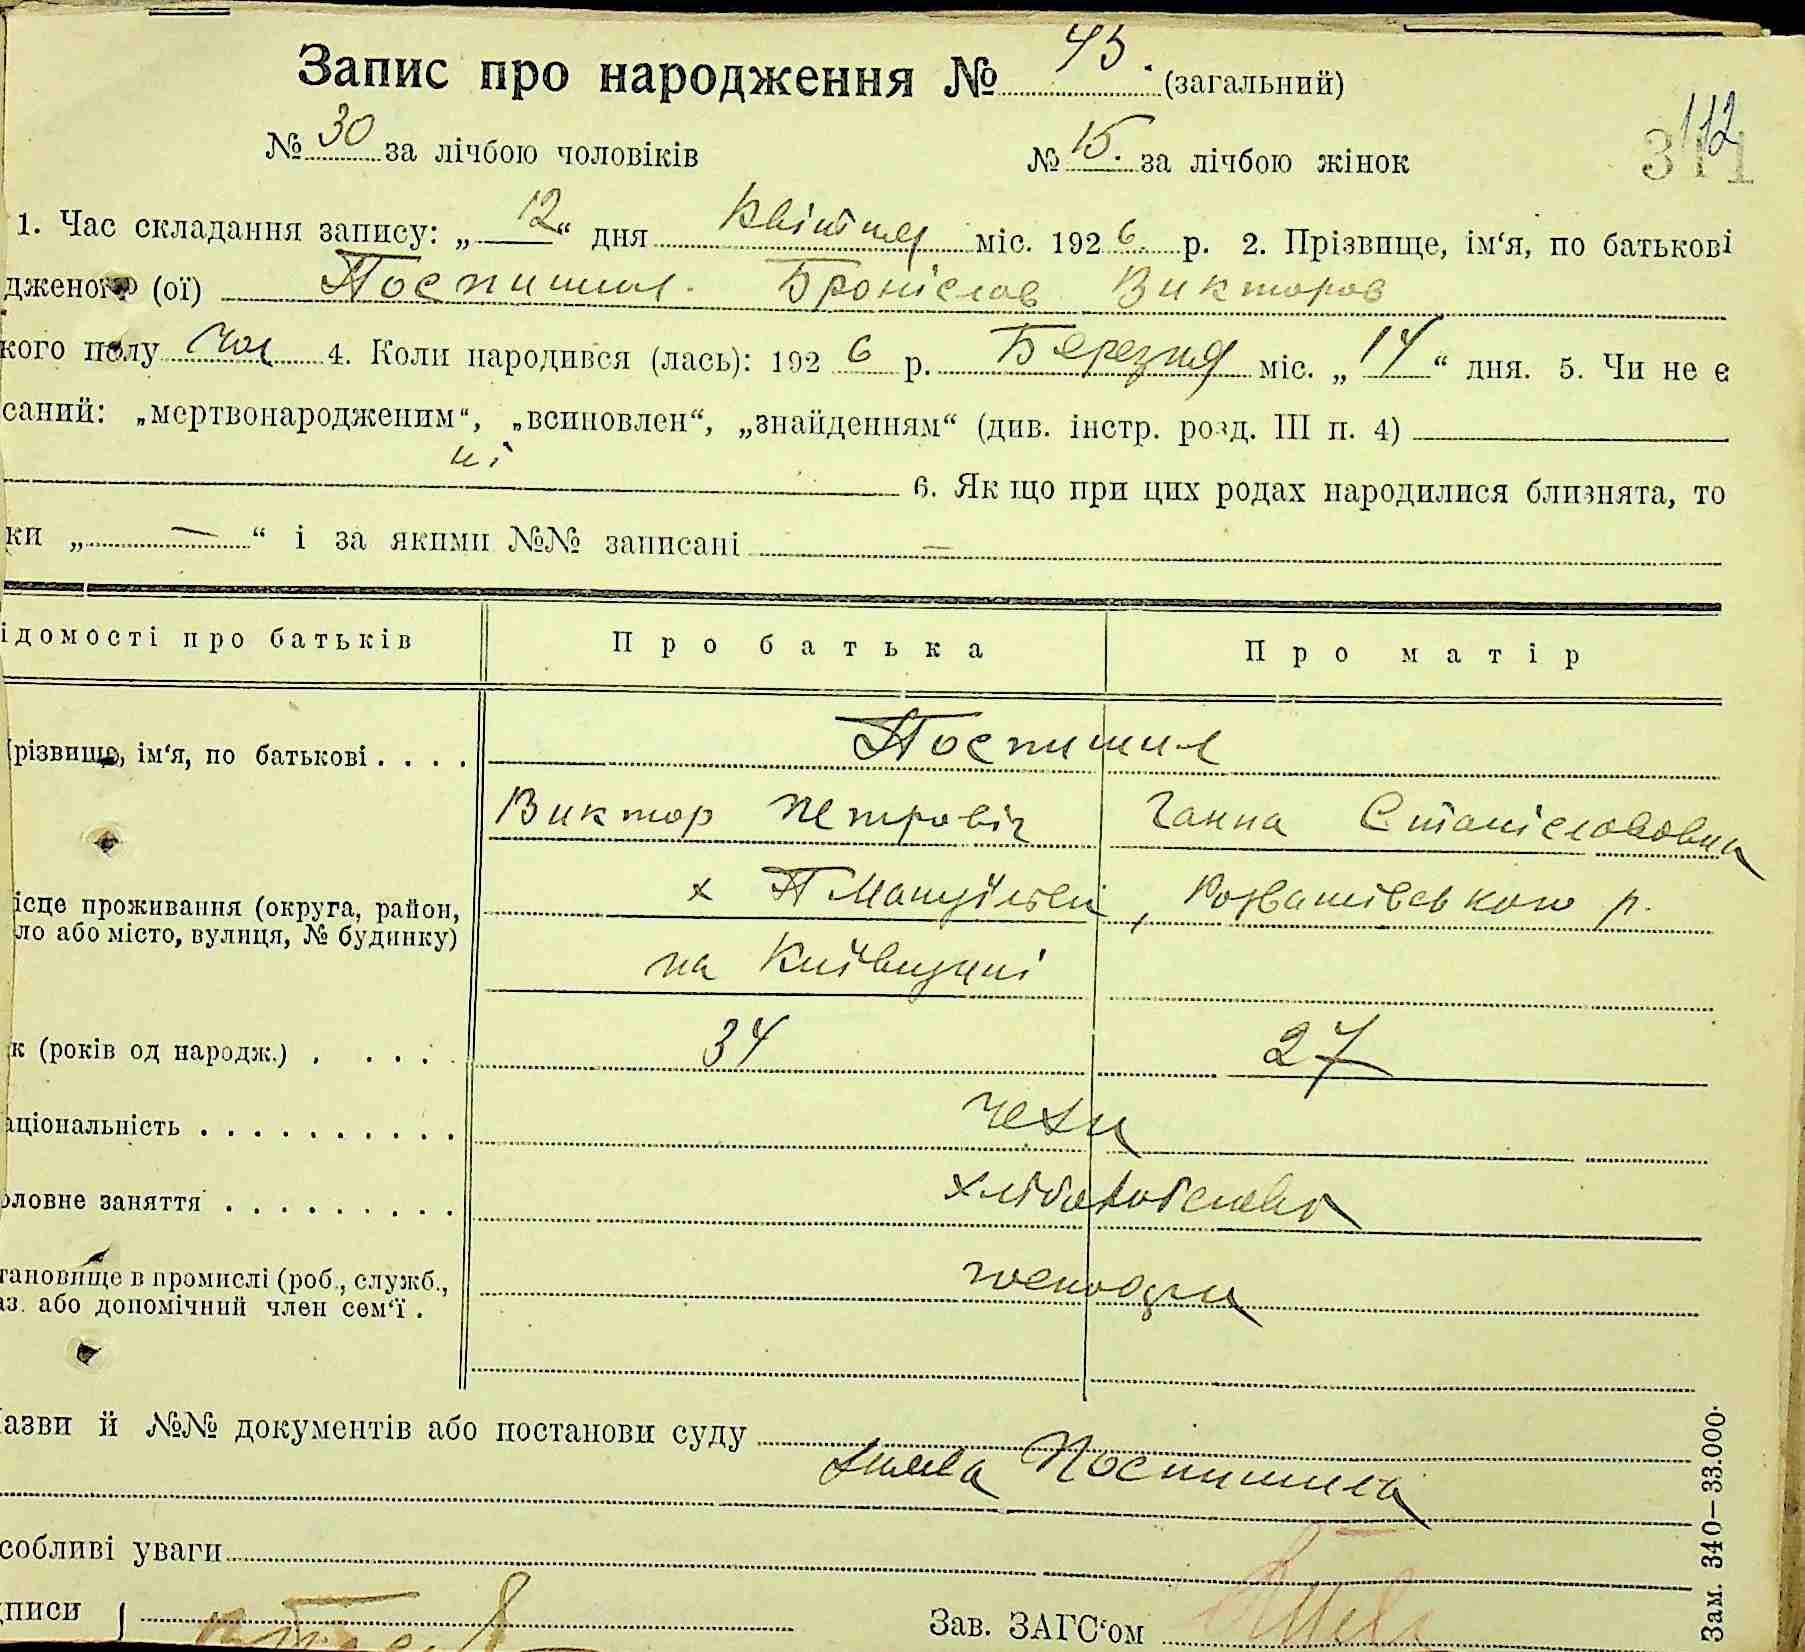 Запис про народження № 45. (загальний)
№ 30 за лічбою чоловіків № 15. за лічбою жінок
112
311
1. Час складання запису: „ 12 “ дня Квітня міс. 1926 р. 2. Прізвище, ім‘я, по батькові
дженого (ої) Поспишил. Броніслав Викторов
кого полу чол 4. Коли народився (лась): 1926 р. Березня міс. „ 14 “ дня. 5. Чи не є
саний: „мертвонародженим“, „всиновлен“, „знайденням“ (див. інстр. розд. III п. 4)
ні
6. Як що при цих родах народилися близнята, то
ки „ — “ і за якими №№ записані —
ідомості про батьків Про батька Про матір
різвище, ім‘я, по батькові . . . . Поспишил
Виктор Петровіч Ганна Станіславовна
ісце проживання (округа, район, х
ло або місто, вулиця, № будинку) р.
на Київщині
к (років од народж.) . . . . . 34 27
аціональність . . . . . . . . . . чехи
оловне заняття . . . . . . . . . хліборобство
тановище в промислі (роб., служб., господари
аз. або допомічний член сем‘ї .
азви й №№ документів або постанови суду
Заява Поспишила
собливі уваги
дписи
Зав. ЗАГС‘ом
Зам. 340—33.000.